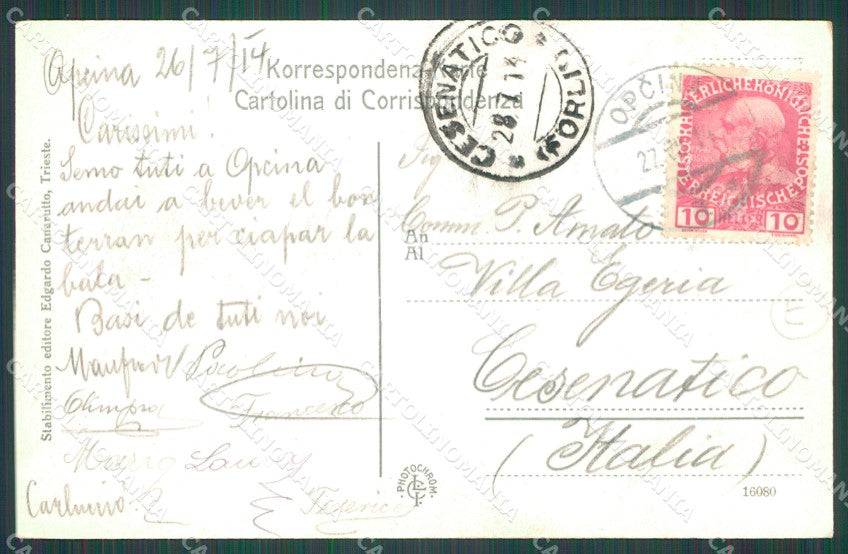 Opcina 26/7/14
Korrespondenz-Karte
Cartolina di Corrispondenza
Carissimi!
Semo tuti a Opcina
andai a bever el bon
terran per ciapar la
bala -
Basi de tuti noi
Manfredi Paolina
Olimpia Francesco
Mario Laura
Carlucio Federico
Stabilimento editore Edgardo Canarutto, Trieste.
CESENATICO (FORLI)
28.7.14
OPČINA
27.
KAISERLICHE KÖNIGLICHE
ÖSTERREICHISCHE POST
10 HELLER 10
Sig
An
Al
Comm. P. Amato
Villa Egeria
Cesenatico
(Italia)
PHOTOCHROM.
16080
CARTOLINOMANIA